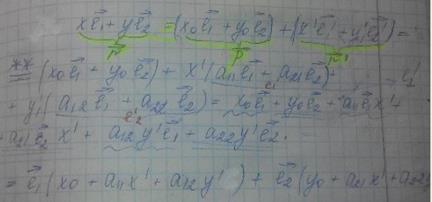 xe⃗₁ + ye⃗₂ = (x₀e⃗₁ + y₀e⃗₂) + (x'e⃗₁' + y'e⃗₂') =
r⃗ p⃗ r⃗'
** = (x₀e⃗₁ + y₀e⃗₂) + x'(a₁₁e⃗₁ + a₂₁e⃗₂) +
+ y'(a₁₂e⃗₁ + a₂₂e⃗₂) = x₀e⃗₁ + y₀e⃗₂ + a₁₁e⃗₁x' +
+ a₂₁e⃗₂x' + a₁₂y'e⃗₁ + a₂₂y'e⃗₂ =
= e⃗₁(x₀ + a₁₁x' + a₁₂y') + e⃗₂(y₀ + a₂₁x' + a₂₂